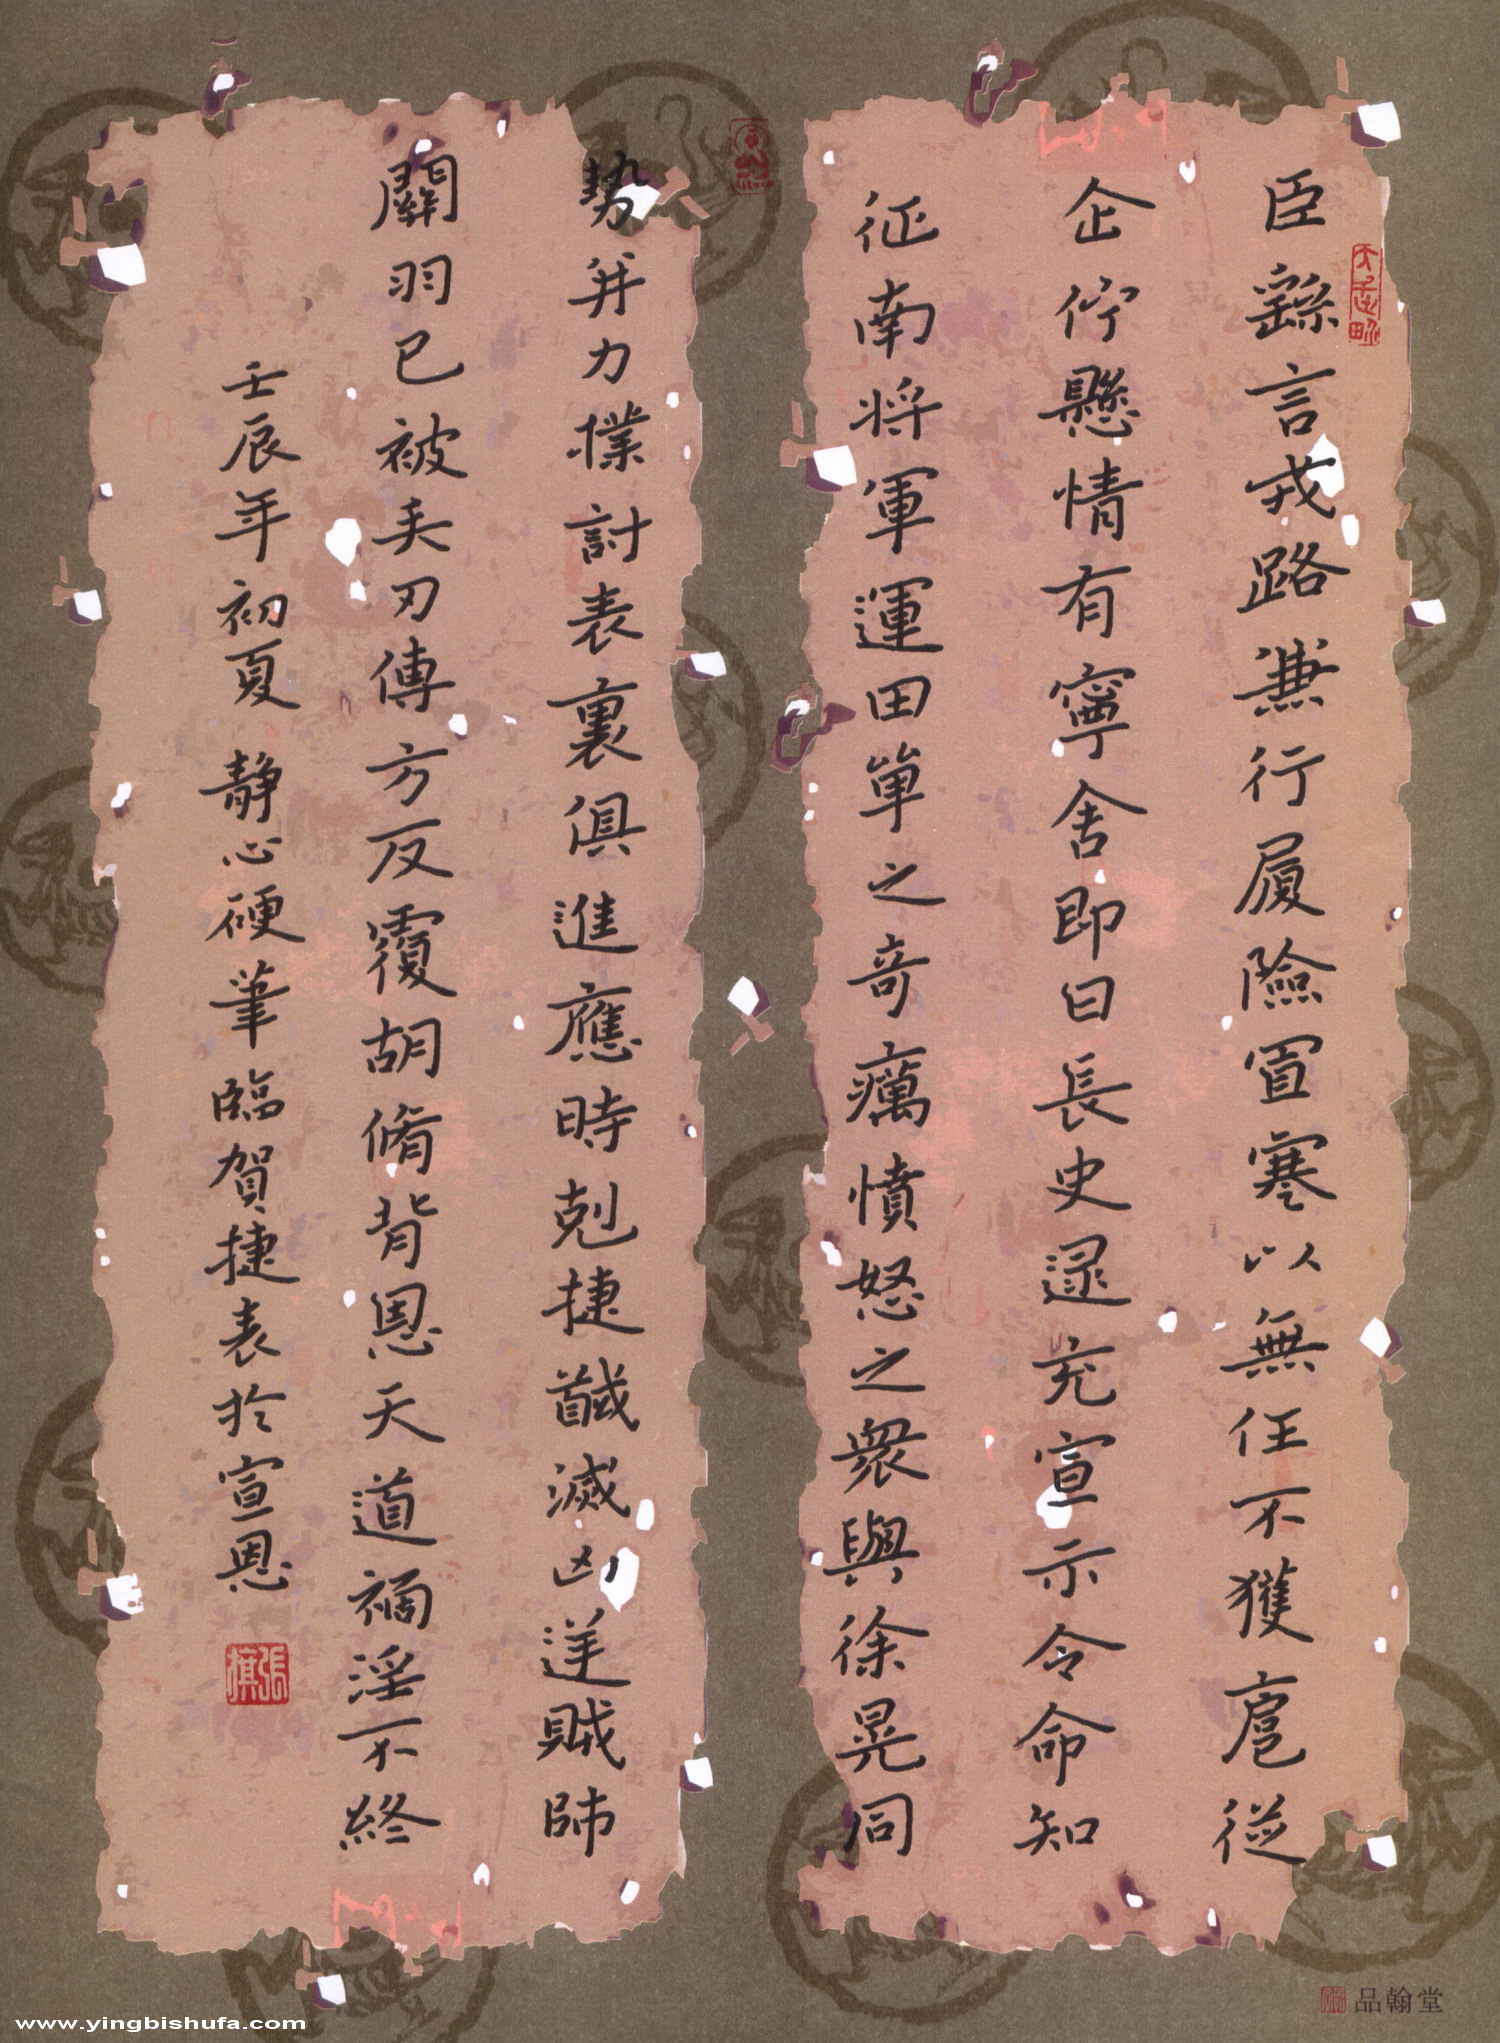 臣繇言戎路兼行履險冒寒以無任不獲扈從
企佇懸情有寧舍即日長史逯充宣示令命知
征南將軍運田單之奇癘憤怒之衆與徐晃同
勢并力撲討表裏俱進應時剋捷馘滅凶逆賊帥
關羽已被矢刃傅方反覆胡脩背恩天道禍淫不終
壬辰年初夏 靜心硬筆臨賀捷表於宣恩
張
品翰堂
www.yingbishufa.com